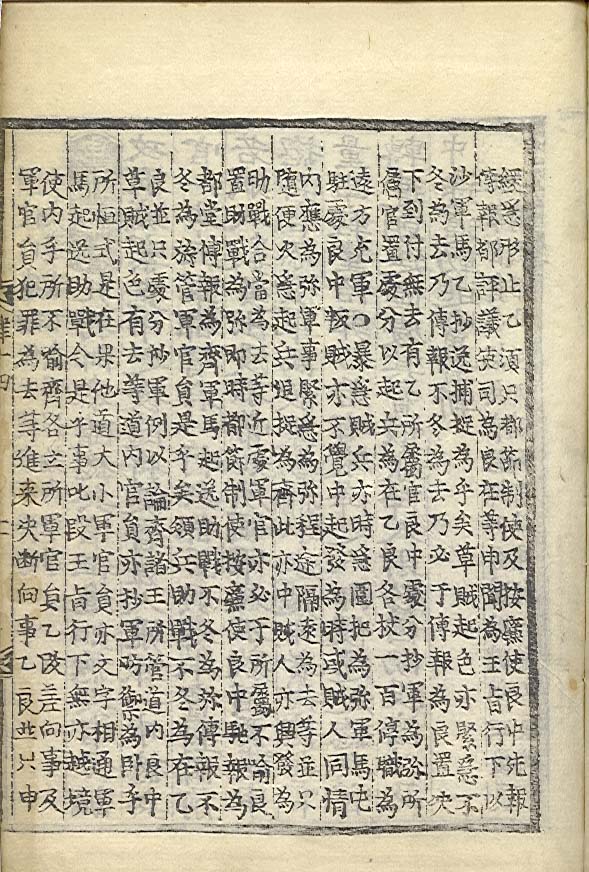 緩急形止乙須只都節制使及按廉使良中先報
傳報都評議使司為良在等申聞為王旨行下以
沙軍馬乙抄送捕捉為乎矣草賊起色亦緊急不
冬為去乃傳報不冬為去乃必于傳報為良置決
下到付無去有乙所屬官良中處分抄軍為旀所
屬官置處分以起兵為在乙良各杖一百停職為
遠方充軍○暴急賊兵亦時急圍把為弥軍馬屯
駐處良中叛賊亦不覺中起發為時或賊人同情
內應為弥軍事緊急為弥程途隔遠為去等並只
隨便火急起兵追捉為齊此亦中賊人亦興發為
助戰合當為去等近處軍官亦必于所屬不喻良
置助戰為弥即時都節制使按廉使良中馳報為
都堂傳報為齊軍馬起送助戰不冬為弥傳報不
冬為旀管軍官員是乎矣領兵助戰不冬為在乙
良並只處分抄軍例以論齊諸王所管道內良中
草賊起色有去等道內官員亦抄軍防禦為臥乎
所恒式是在果他道大小軍官員亦文字相通軍
馬起送助戰令是乎事叱段王旨行下無亦越境
使內乎所不喻齊各立所軍官員乙改差向事及
軍官員犯罪為去等進來決斷向事乙良並只申